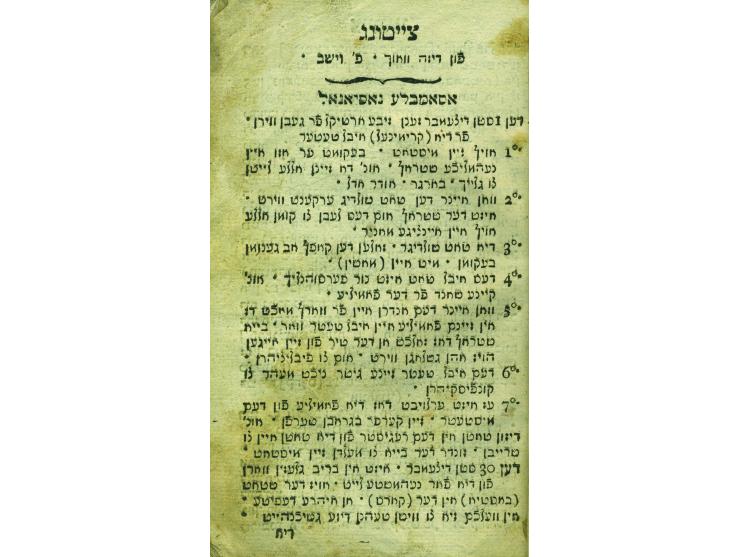 צייטונג
פון דיזה וואוך • פ' וישב •
אסאמבלע נאסיאנאל
דען 1סטן דעצעמבר זענן זיבע ארטיקל פר געבן ווירן •
פר דיא (קרימינעל) איבל טעטער
1° אויף זיין איסטאט • בעקומט ער אזו איין
נעהמליכע שטראף • אונ' דא זיינן אללע לייטן
צו גלייך • בארגר • אודר אדל •
2° וואן איינר דען טאט שולדיג ערקענט ווירט •
איזט דער שטראף אום דעס לעבן צו קומן אללע
אויף איין אייניגע מאניר •
3° דיא טאט שולדיגר • זאלען דען קאפף אב גענומן
בעקומן • מיט איין (מאשין)
4° דעס איבל טאט איזט נור פערסוהנליך • אונ'
קיינע שאנד פר דער פאמיליע •
5° וואן איינר דעם אנדרן איין פר ווארף מאכט דז
אין זיינם פאמיליע איין איבל טעטר וואר • בייא
שטראף דאז זאלכש אן דער טיר פון זיין אייגען
הויז אהן געשלאגן ווירט • אום צו פיבליציהרן •
6° דעס איבל טעטר זיינע גיטר ניכט מעהר צו
קונפיסקיהרן •
7° עז איזט ערלויבט דאז דיא פאמיליע פון דעם
מיסטעטר • זיין קערפר בגראבן טערפן • אונ'
דיזון טאטן אין דעם רעגיסטר פון דיא טאטן איין צו
שרייבן • זונדר דער בייא צו מעלדן זיין איסטאט •
דען 30 סטן דעצעמבר • איזט אין בריב געזין ווארן
פון דיא פאר נעהמסטע לייט • אויז דער שטאט
(באסטיא) אין דער (קארס) • אן איהרע דעפיטע •
אין וועלכם זיא צו וויסן טעהן דיזע געשיכהייט •
דיא